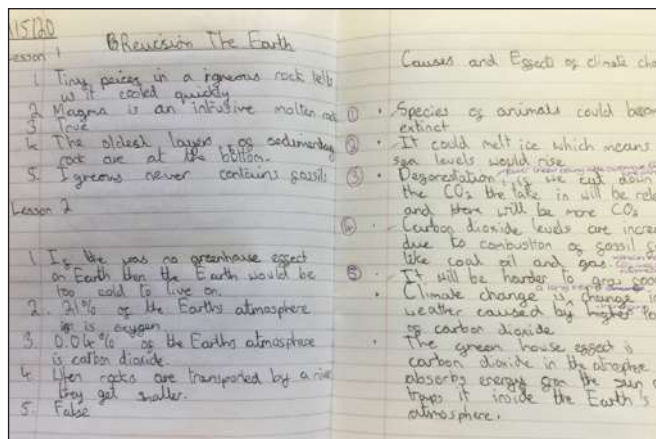 1/5/20
Revision The Earth
Lesson 1
1. Tiny peices in a igneous rock tells
us it cooled quickly
2 Magma is an intrusive molten rock
3 True
4. The oldest layers of sedimentary
rock are at the bottom.
5. Igneous never contains fossils
Lesson 2
1 If the was no greenhouse effect
on Earth then the Earth would be
too cold to live on.
2. 21% of the Earths atmosphere
is oxygen
3. 0.04% of the Earths atmosphere
is carbon dioxide.
4 When rocks are transported by a river
they get smaller.
5. False
Causes and Effects of climate cha
① • Species of animals could becom
extinct
② • It could melt ice which means
sea levels would rise
③ • Deforestation if we cut down
the CO2 the take in will be rele
and there will be more CO2
④ • Carbon dioxide levels are increa
due to combustion of fossil fu
like coal oil and gas.
⑤ • It will be harder to grow
• Climate change is change in
weather caused by higher
of carbon dioxide
• The green house effect is
carbon dioxide in the atmosphere
absorbs energy from the sun
traps it inside the Earth's
atmosphere.